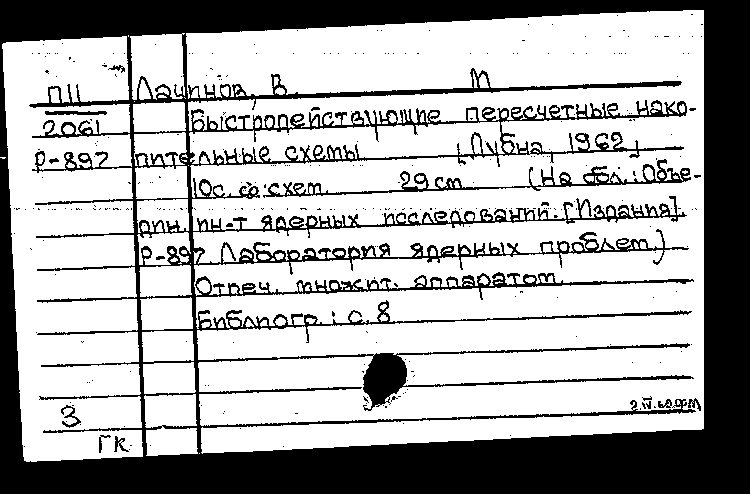 П11 Лачинов, В. М
2061 Быстродействующие пересчетные нако-
Р-897 пительные схемы [Дубна, 1962]
10с. со схем. 29 см (На обл.: Объе-
дин. ин-т ядерных исследований. [Издания].
Р-897 Лаборатория ядерных проблем.)
Отпеч. множит. аппаратом.
Библиогр.: с. 8
3
ГК